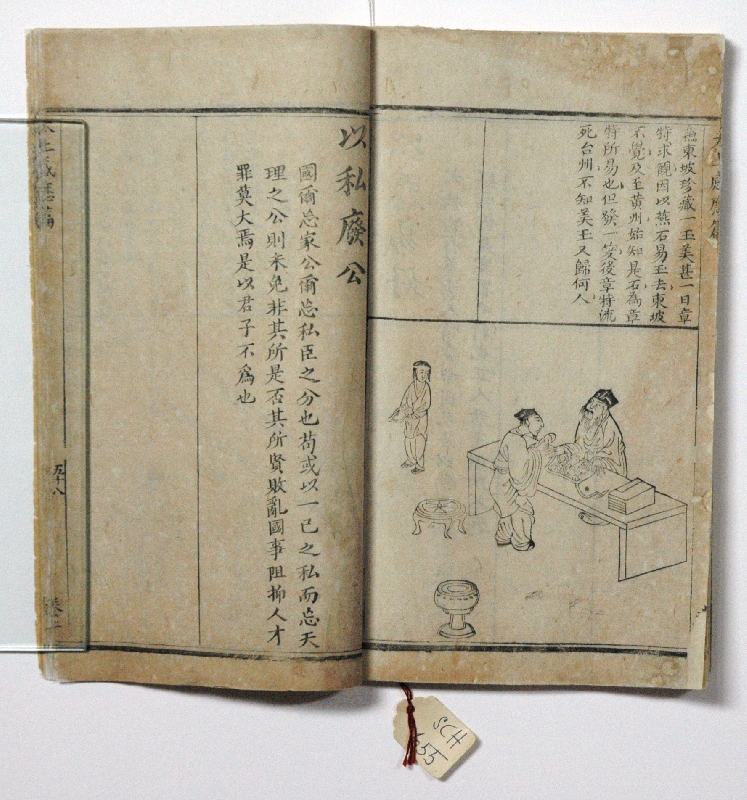 蘇東坡珍藏一玉美甚一日章
特求觀因以燕石易玉去東坡
不覺及至黃州始知是石為章
特所易也但發一笑後章特流
死台州不知美玉又歸何人
以私廢公
國爾忘家公爾忘私臣之分也苟或以一己之私而忘天
理之公則未免非其所是否其所賢敗亂國事阻抑人才
罪莫大焉是以君子不爲也
五十八
卷二
SCH